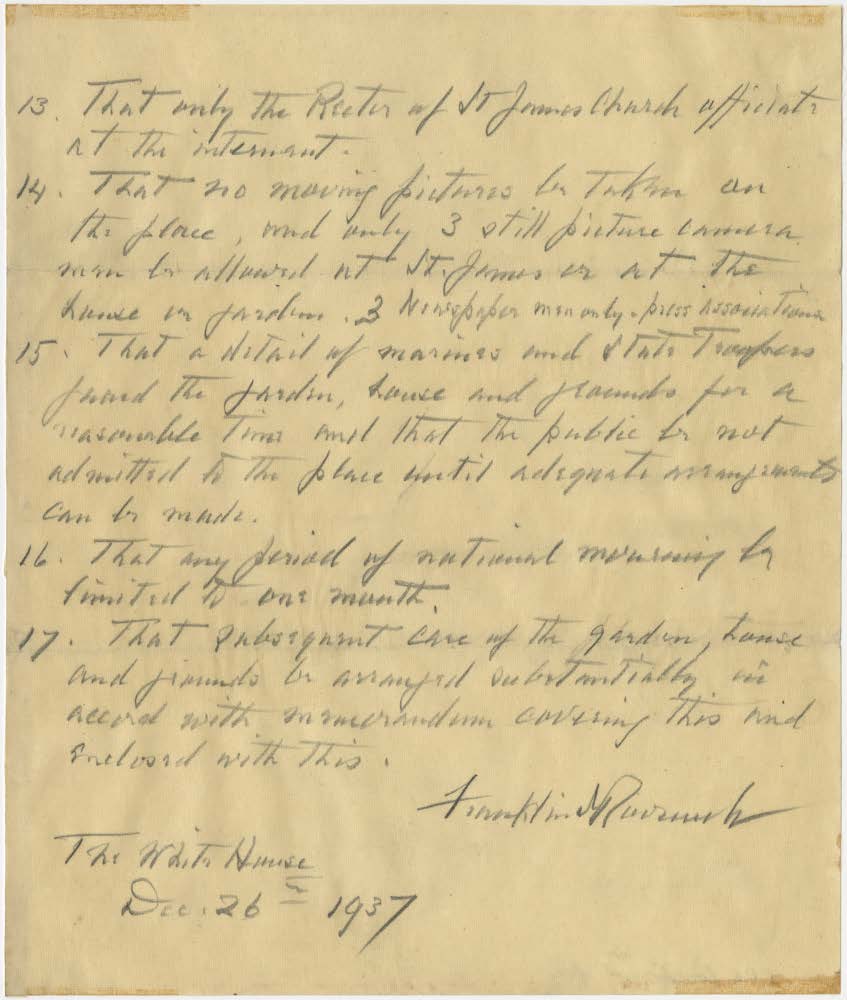 13. That only the Rector of St James Church officiate
at the interment.
14. That no moving pictures be taken on
the place, and only 3 still picture camera
men be allowed at St. James or at the
house or garden. 3 Newspaper men only - press associations
15. That a detail of marines and State Troopers
guard the garden, house and grounds for a
reasonable time and that the public be not
admitted to the place until adequate arrangements
can be made.
16. That any period of national mourning be
limited to one month.
17. That subsequent care of the garden, house
and grounds be arranged substantially in
accord with memorandum covering this and
enclosed with this.
Franklin D Roosevelt
The White House
Dec. 26 1937